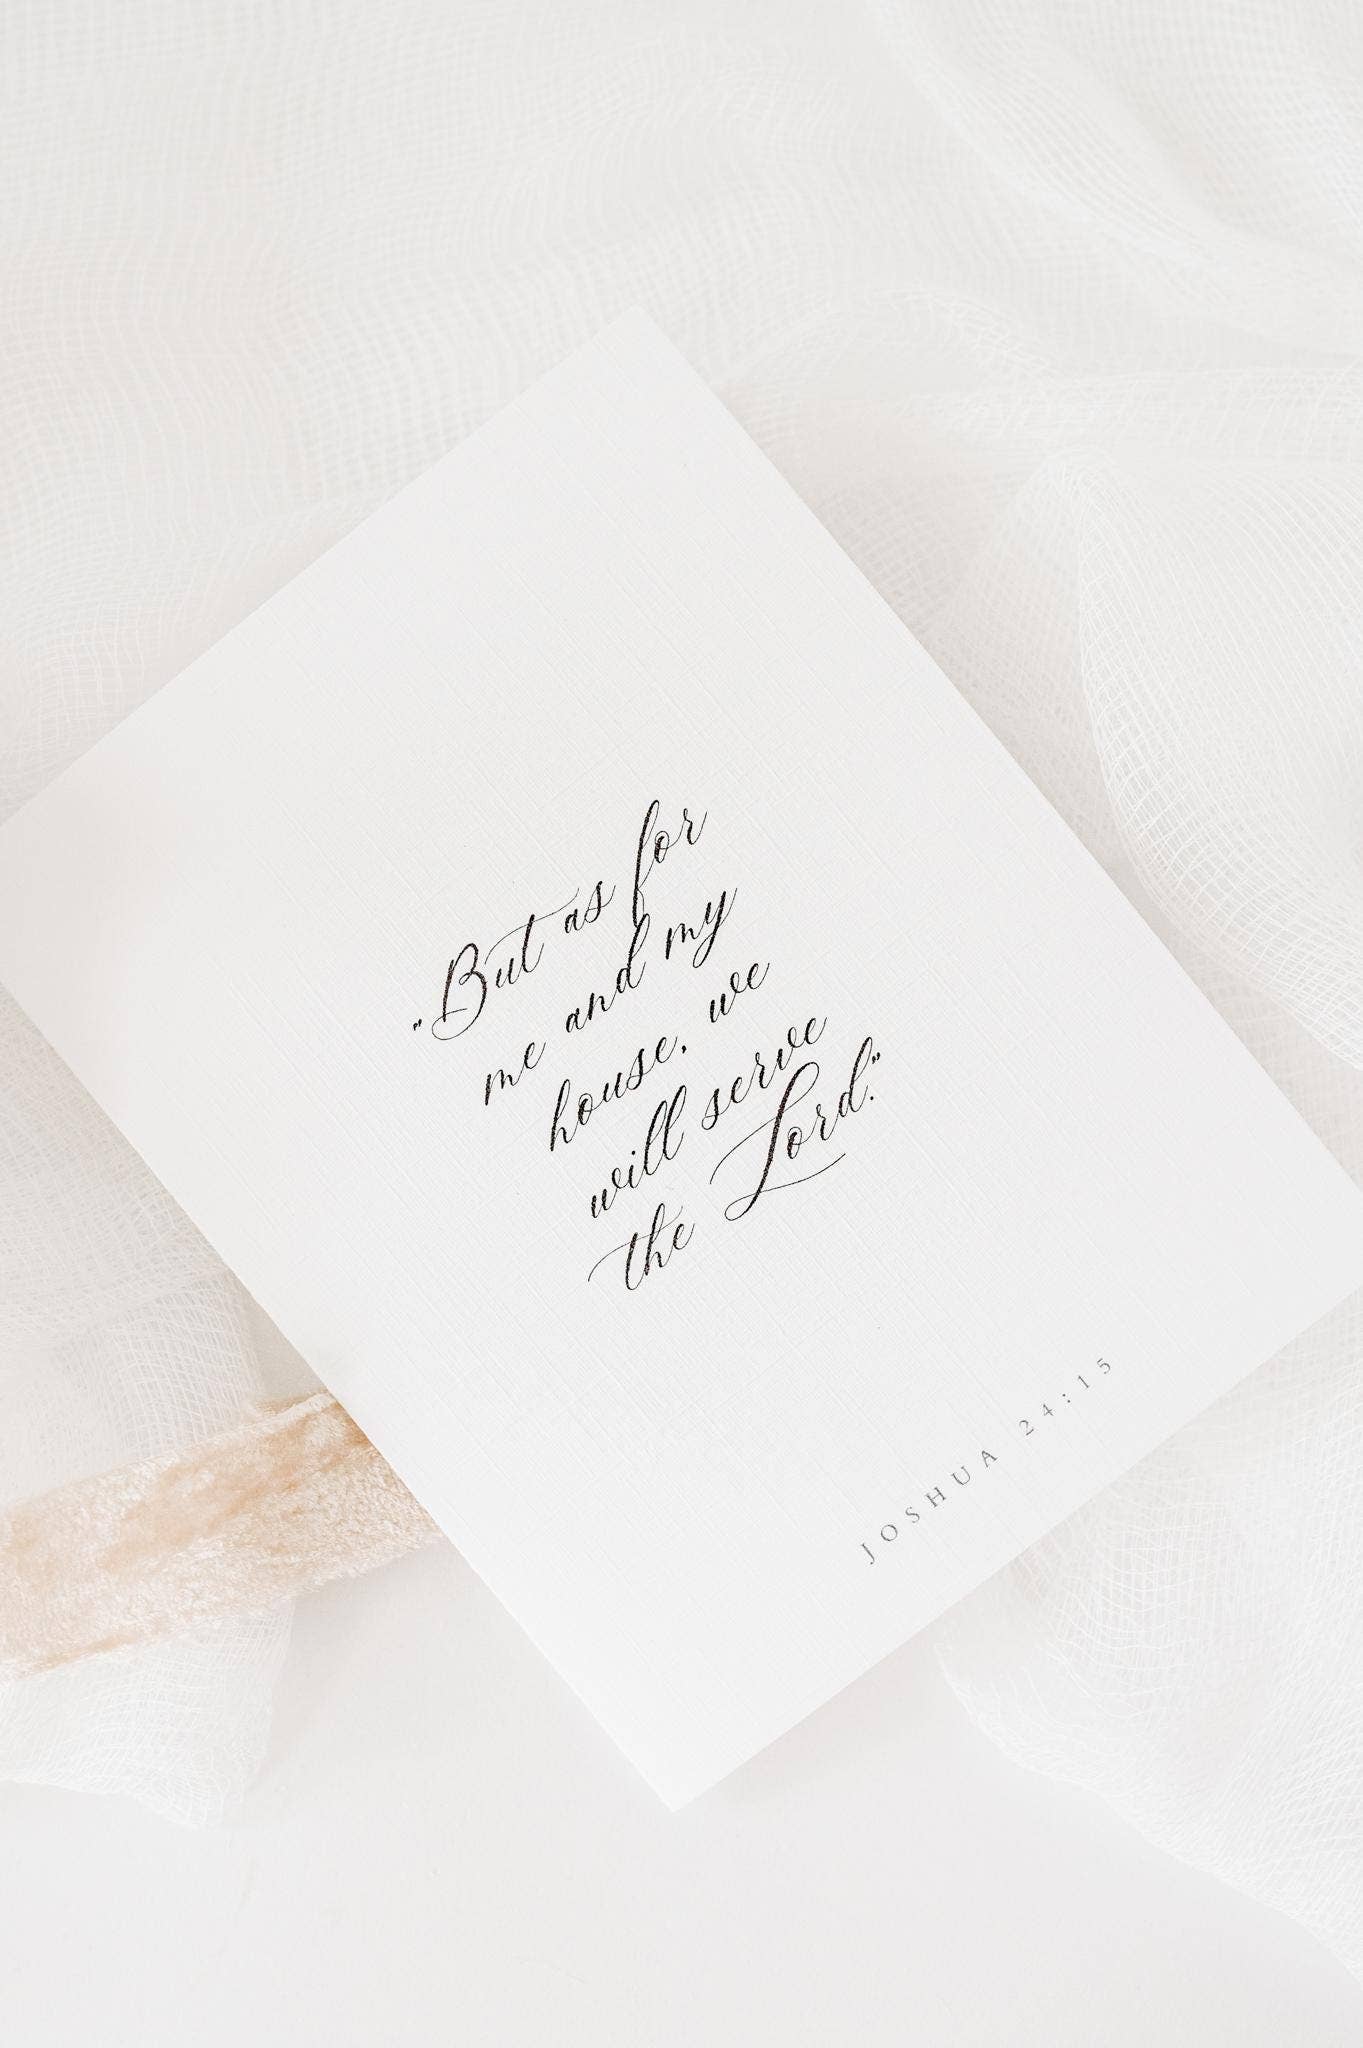 "But as for
me and my
house, we
will serve
the Lord."
JOSHUA 24:15